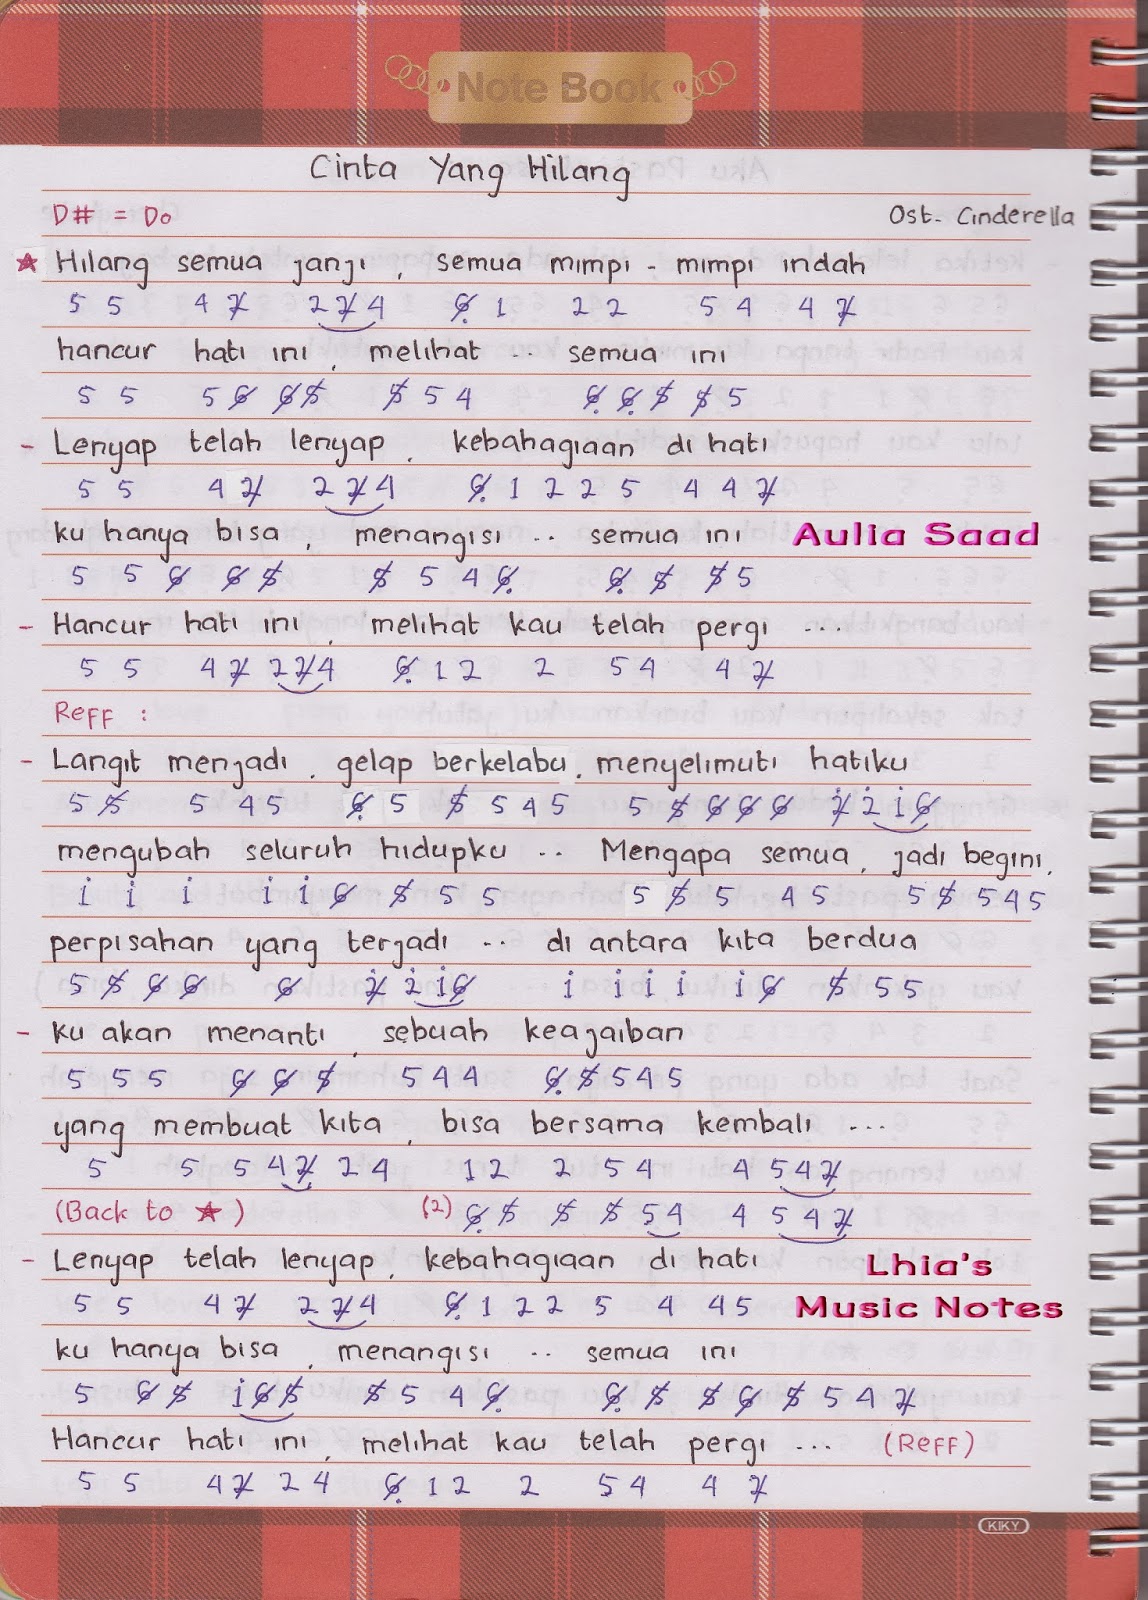 Note Book
Cinta Yang Hilang
D# = Do
Ost. Cinderella
★ Hilang semua janji, semua mimpi - mimpi indah
5 5 4 2̸ 2 2̸ 4 6̸̣ 1 2 2 5 4 4 2̸
hancur hati ini, melihat .. semua ini
5 5 5 6̸ 6̸ 5̸ 5̸ 5 4 6̸̣ 6̸̣ 5̸ 5̸ 5
- Lenyap telah lenyap, kebahagiaan di hati
5 5 4 2̸ 2 2̸ 4 6̸̣ 1 2 2 5 4 4 2̸
ku hanya bisa, menangisi .. semua ini
Aulia Saad
5 5 6̸ 6̸ 5̸ 5̸ 5 4 6̸̣ 6̸̣ 5̸ 5̸ 5
- Hancur hati ini, melihat kau telah pergi ...
5 5 4 2̸ 2 2̸ 4 6̸̣ 1 2 2 5 4 4 2̸
Reff :
- Langit menjadi, gelap berkelabu, menyelimuti hatiku
5 5̸ 5 4 5 6̸̣ 5 5̸ 5 4 5 5 5̸ 6̸ 6̸ 6̸ 2̸̇ 2̇ 1̇ 6̸
mengubah seluruh hidupku .. Mengapa semua, jadi begini,
1̇ 1̇ 1̇ 1̇ 1̇ 6̸ 5̸ 5 5 5 5̸ 5 4 5 5 5̸ 5 4 5
perpisahan yang terjadi .. di antara kita berdua
5 5̸ 6̸ 6̸ 6̸ 2̸̇ 2̇ 1̇ 6̸ 1̇ 1̇ 1̇ 1̇ 1̇ 6̸ 5̸ 5 5
- ku akan menanti, sebuah keajaiban
5 5 5 6̸ 6̸ 5̸ 5 4 4 6̸̣ 5̸ 5 4 5
yang membuat kita, bisa bersama kembali ...
5 5 5 4 2̸ 2 4 1 2 2 5 4 4 5 4 2̸
(Back to ★) (2) 6̸̣ 5̸ 5̸ 5̸ 5 4 4 5 4 2̸
- Lenyap telah lenyap, kebahagiaan di hati
Lhia's
5 5 4 2̸ 2 2̸ 4 6̸̣ 1 2 2 5 4 4 5
Music Notes
ku hanya bisa, menangisi .. semua ini
5 6̸ 5̸ 1̇ 6̸ 5̸ 5̸ 5 4 6̸̣ 6̸̣ 5̸ 5̸ 6̸ 5̸ 5 4 2̸
Hancur hati ini, melihat kau telah pergi ... (Reff)
5 5 4 2̸ 2 4 6̸̣ 1 2 2 5 4 4 2̸
KIKY